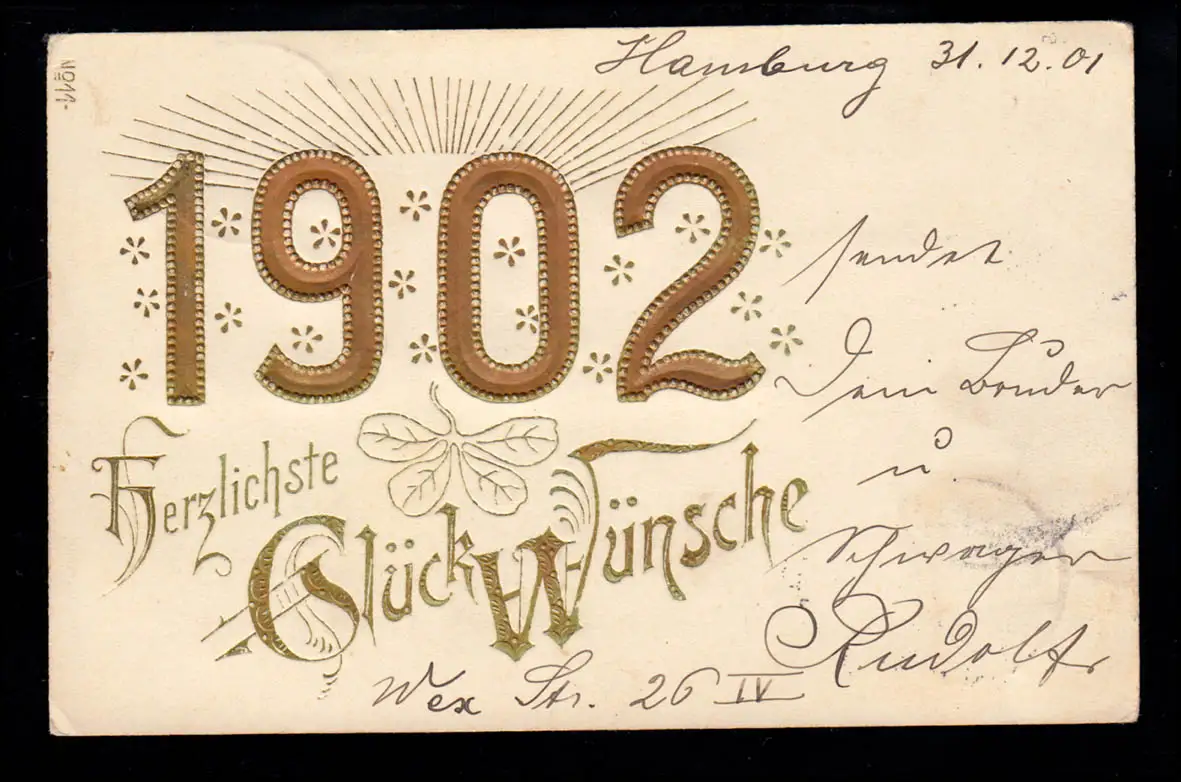 Hamburg 31.12.01
No 11-
1902
Herzlichste
Glückwünsche
sendet
Dein Bruder
u
Schwager
Rudolf.
Wex Str. 26 IV